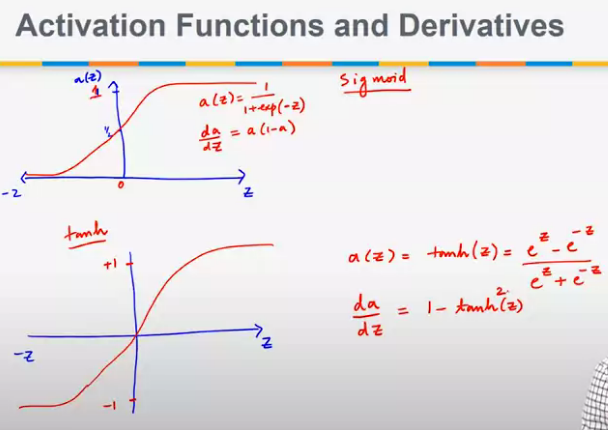 Activation Functions and Derivatives
a(z)
1
½
0
-z
z
a(z) = 1/(1+exp(-z))
da/dz = a(1-a)
Sigmoid
tanh
+1
-z
z
-1
a(z) = tanh(z) = (e^z - e^-z)/(e^z + e^-z)
da/dz = 1 - tanh²(z)